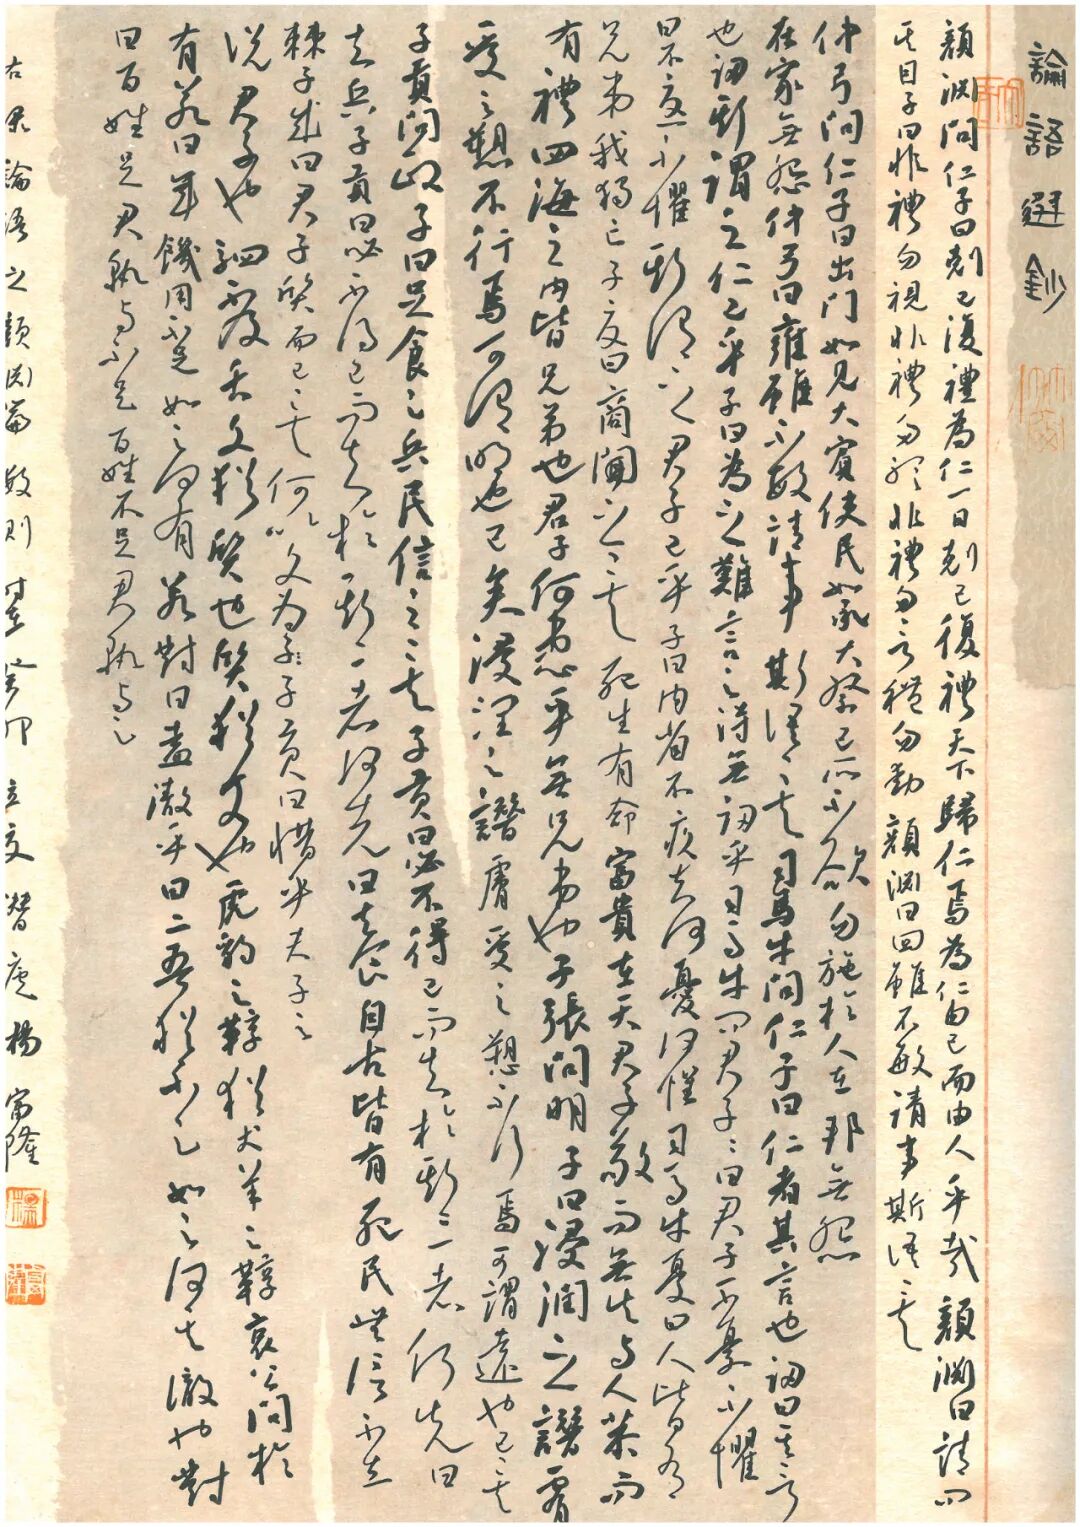 論語選鈔
顏淵問仁子曰剋己復禮為仁一日剋己復禮天下歸仁焉為仁由己而由人乎哉顏淵曰請問
其目子曰非禮勿視非禮勿聽非禮勿言非禮勿動顏淵曰回雖不敏請事斯語矣
仲弓問仁子曰出門如見大賓使民如承大祭己所不欲勿施於人在邦無怨
在家無怨仲弓曰雍雖不敏請事斯語矣司馬牛問仁子曰仁者其言也訒曰其言
也訒斯謂之仁已乎子曰為之難言之得無訒乎司馬牛問君子子曰君子不憂不懼
曰不憂不懼斯謂之君子已乎子曰內省不疚夫何憂何懼司馬牛憂曰人皆有
兄弟我獨亡子夏曰商聞之矣死生有命富貴在天君子敬而無失與人恭而
有禮四海之內皆兄弟也君子何患乎無兄弟也子張問明子曰浸潤之譖膚
受之愬不行焉可謂明也已矣浸潤之譖膚受之愬不行焉可謂遠也已矣
子貢問政子曰足食足兵民信之矣子貢曰必不得已而去於斯三者何先曰
去兵子貢曰必不得已而去於斯二者何先曰去食自古皆有死民無信不立
棘子成曰君子質而已矣何以文為子貢曰惜乎夫子之
說君子也駟不及舌文猶質也質猶文也虎豹之鞟猶犬羊之鞟哀公問於
有若曰年饑用不足如之何有若對曰盍徹乎曰二吾猶不足如之何其徹也對
曰百姓足君孰與不足百姓不足君孰與足
右录論語之顏淵篇數則時在癸卯立夏潛廬楊富隆